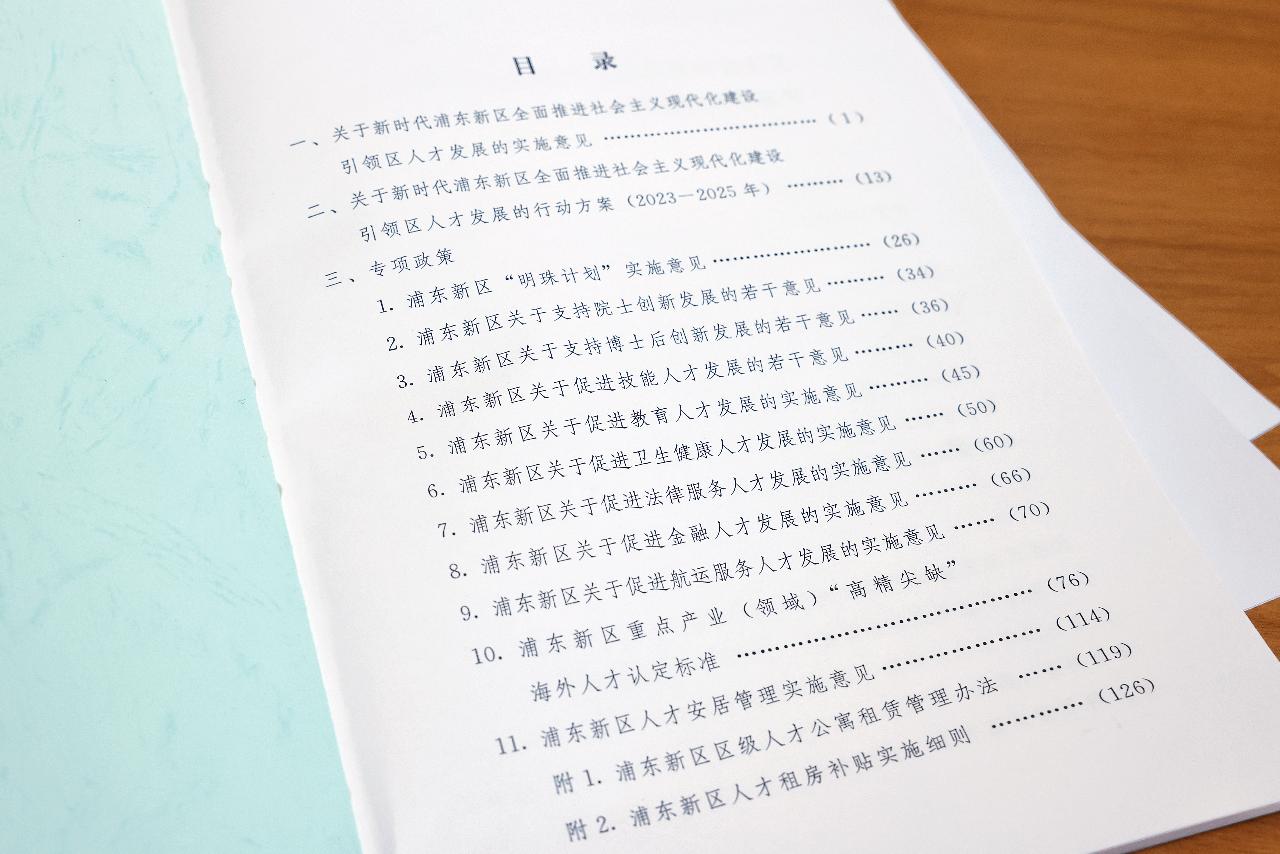 目 录
一、关于新时代浦东新区全面推进社会主义现代化建设
引领区人才发展的实施意见 ……………………………（1）
二、关于新时代浦东新区全面推进社会主义现代化建设
引领区人才发展的行动方案（2023—2025 年）………（13）
三、专项政策
1. 浦东新区“明珠计划”实施意见 ……………………（26）
2. 浦东新区关于支持院士创新发展的若干意见 ………（34）
3. 浦东新区关于支持博士后创新发展的若干意见 ……（36）
4. 浦东新区关于促进技能人才发展的若干意见 ………（40）
5. 浦东新区关于促进教育人才发展的实施意见 ………（45）
6. 浦东新区关于促进卫生健康人才发展的实施意见 ……（50）
7. 浦东新区关于促进法律服务人才发展的实施意见 ……（60）
8. 浦东新区关于促进金融人才发展的实施意见 ………（66）
9. 浦东新区关于促进航运服务人才发展的实施意见 ……（70）
10. 浦东新区重点产业（领域）“高精尖缺”
海外人才认定标准 ……………………………………（76）
11. 浦东新区人才安居管理实施意见 ……………………（114）
附 1. 浦东新区区级人才公寓租赁管理办法 ……（119）
附 2. 浦东新区人才租房补贴实施细则 …………（126）